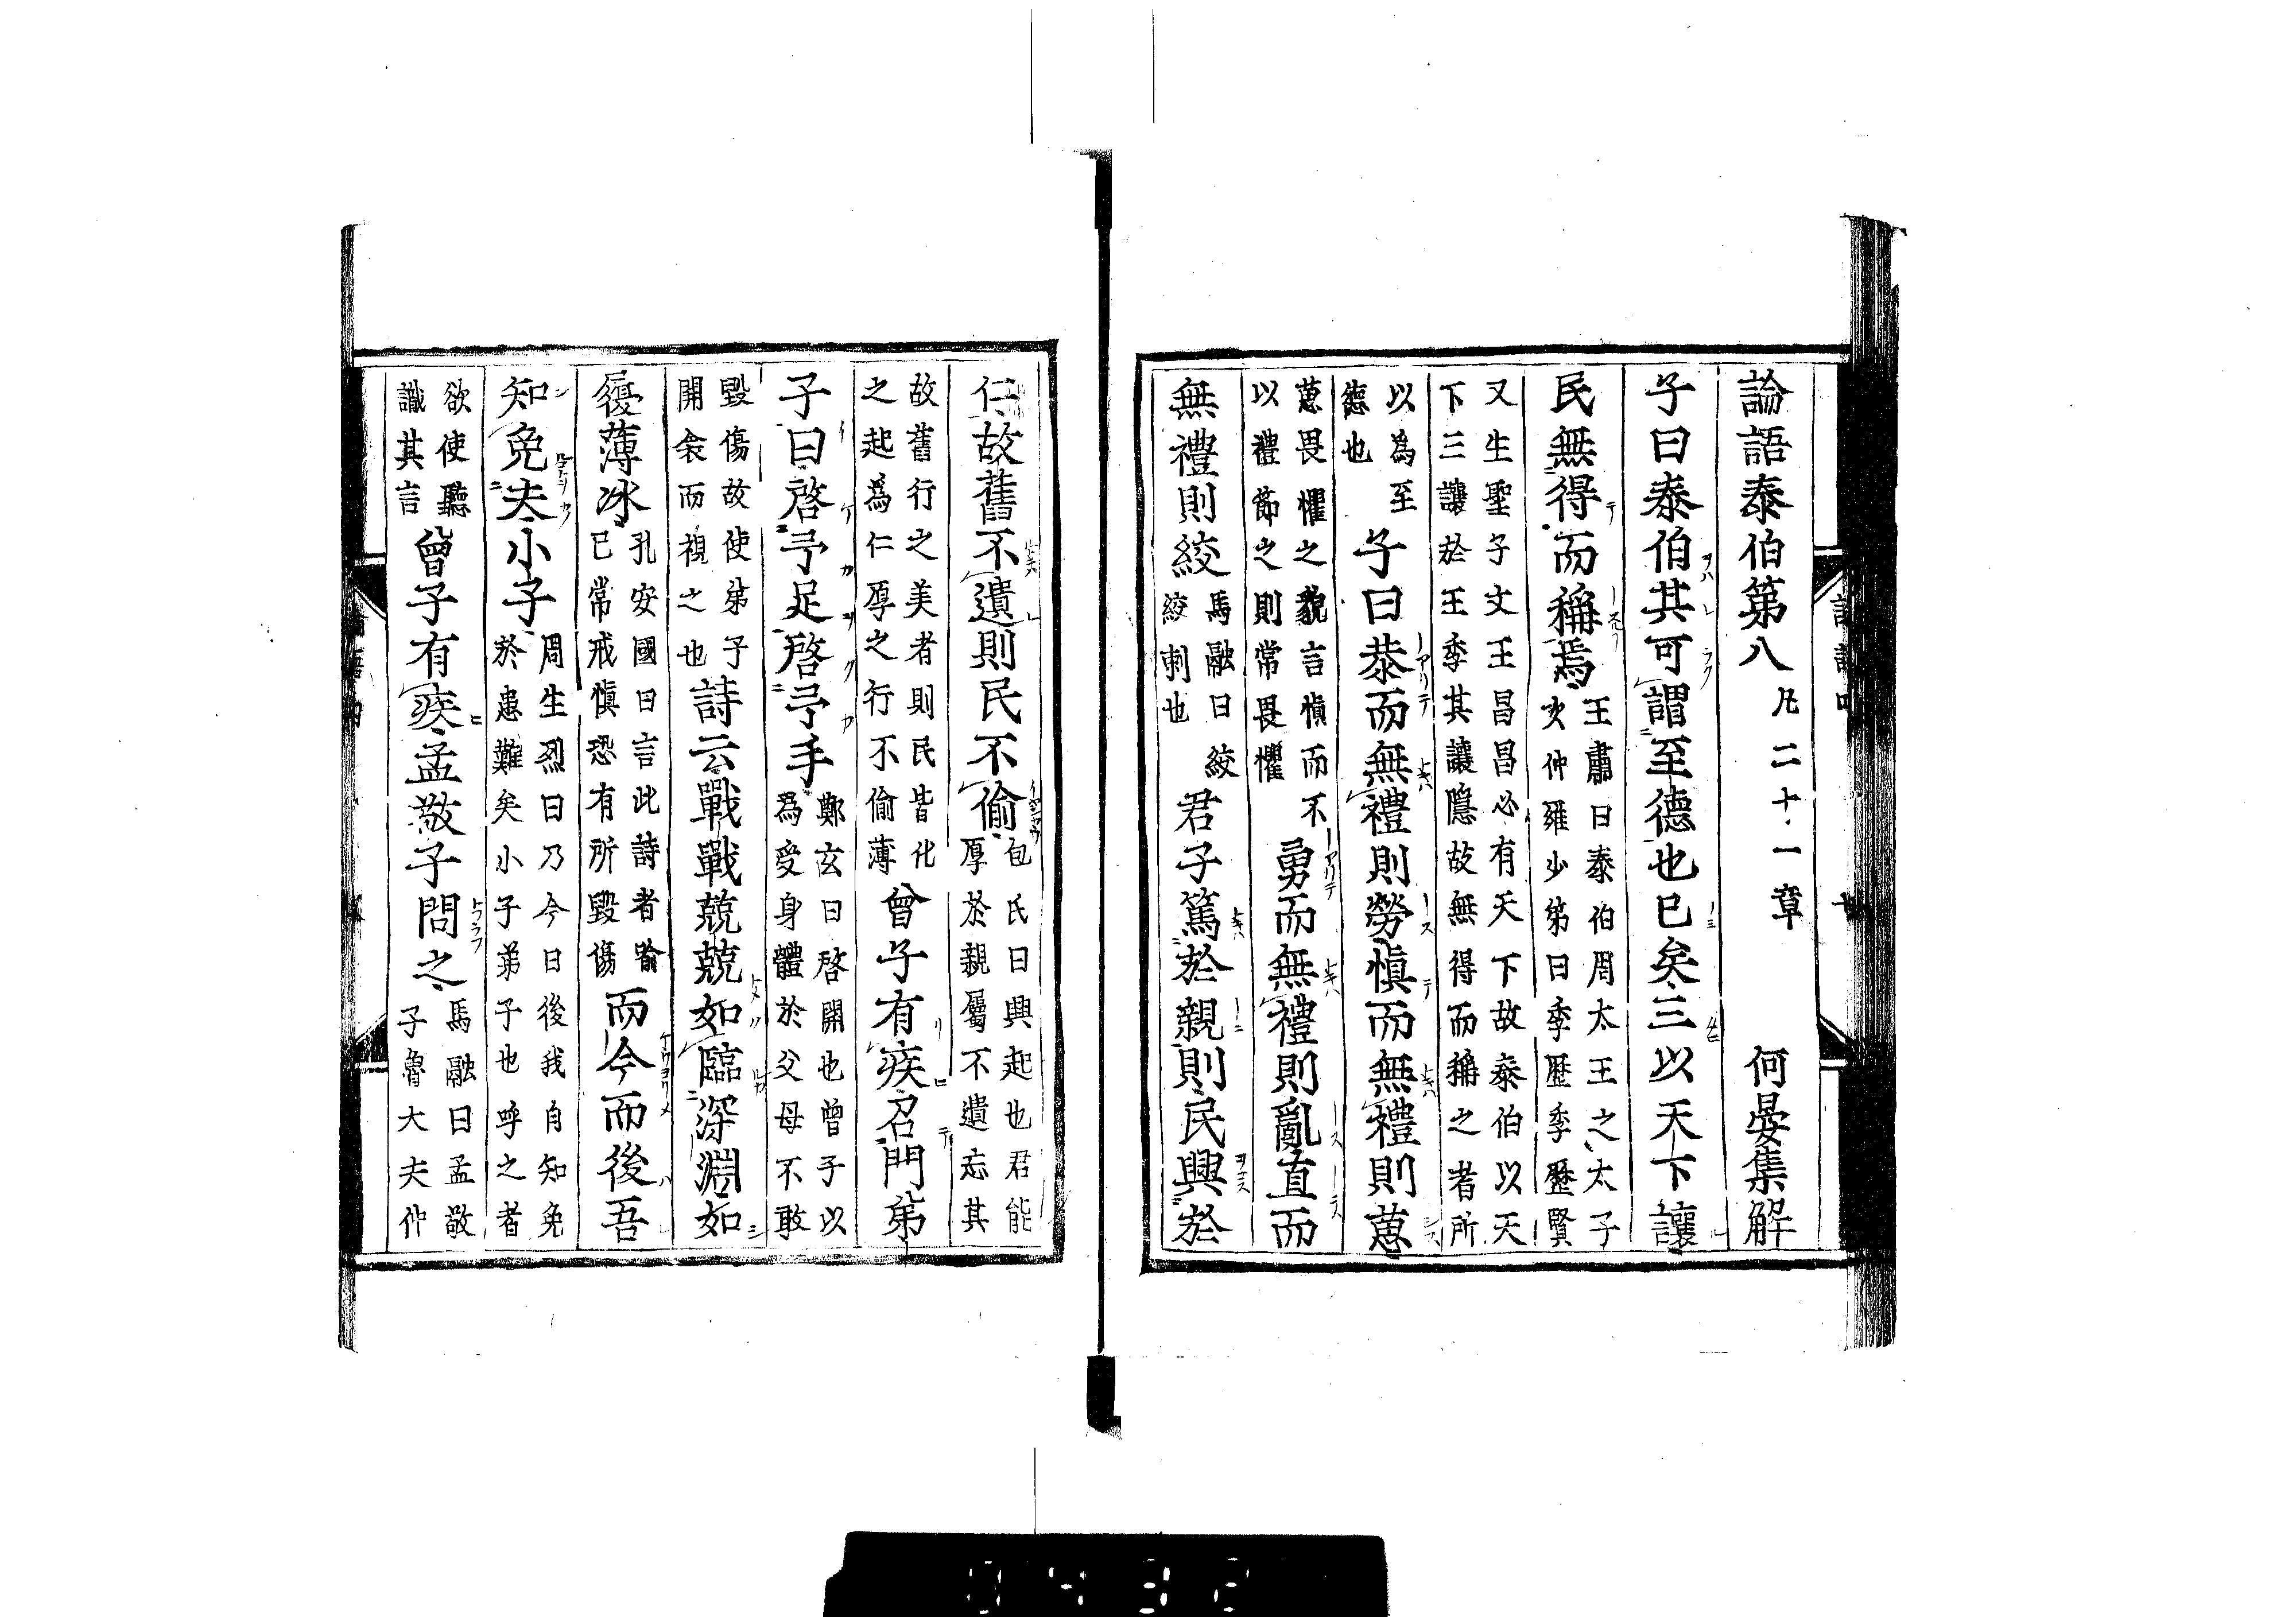 論語泰伯第八 凡二十一章 何晏集解
子曰泰伯其可謂至德也已矣三以天下讓
民無得而稱焉 王肅曰泰伯周太王之太子
次仲雍少弟曰季歷季歷賢
又生聖子文王昌昌必有天下故泰伯以天
下三讓於王季其讓隱故無得而稱之者所
以為至
德也 子曰恭而無禮則勞慎而無禮則葸
葸畏懼之貌言慎而不
以禮節之則常畏懼 勇而無禮則亂直而
無禮則絞 馬融曰絞
絞刺也 君子篤於親則民興於
仁故舊不遺則民不偷 包氏曰興起也君能
厚於親屬不遺忘其
故舊行之美者則民皆化
之起為仁厚之行不偷薄 曾子有疾召門弟
子曰啓予足啓予手 鄭玄曰啓開也曾子以
為受身體於父母不敢
毀傷故使弟子
開衾而視之也 詩云戰戰兢兢如臨深淵如
履薄冰 孔安國曰言此詩者喻
已常戒慎恐有所毀傷 而今而後吾
知免夫小子 周生烈曰乃今日後我自知免
於患難矣小子弟子也呼之者
欲使聽
識其言 曾子有疾孟敬子問之 馬融曰孟敬
子魯大夫仲
0432